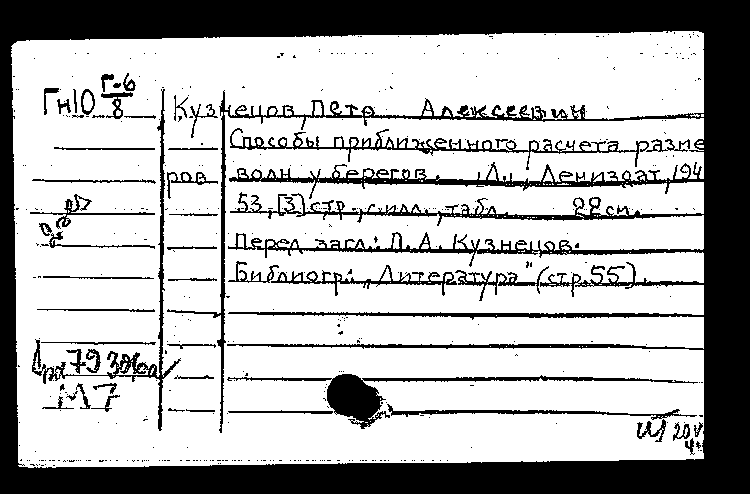 Гн10 Г-6/8
Кузнецов, Петр Алексеевич
Способы приближенного расчета разме
ров волн у берегов. Л., Лениздат, 194
53, [3] стр., с илл., табл. 22 см.
Перед загл.: П. А. Кузнецов.
Библиогр.: „Литература" (стр. 55).
М 7